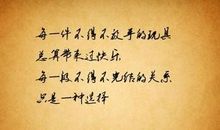 每一件不得不放手的玩具
总算带来过快乐
每一段不得不完结的关系
只是一种选择